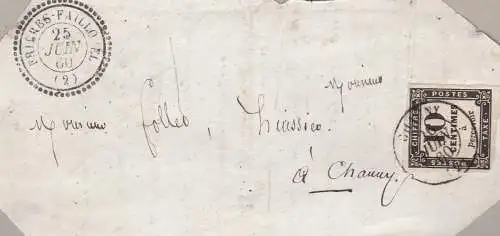 FRIERES-FAILLOUEL
25
JUIN
60
(2)
Monsieur
Monsieur follet, huissier
à Chauny
POSTES
CHIFFRE
10
CENTIMES
à
Percevoir
TAXE
POSTES